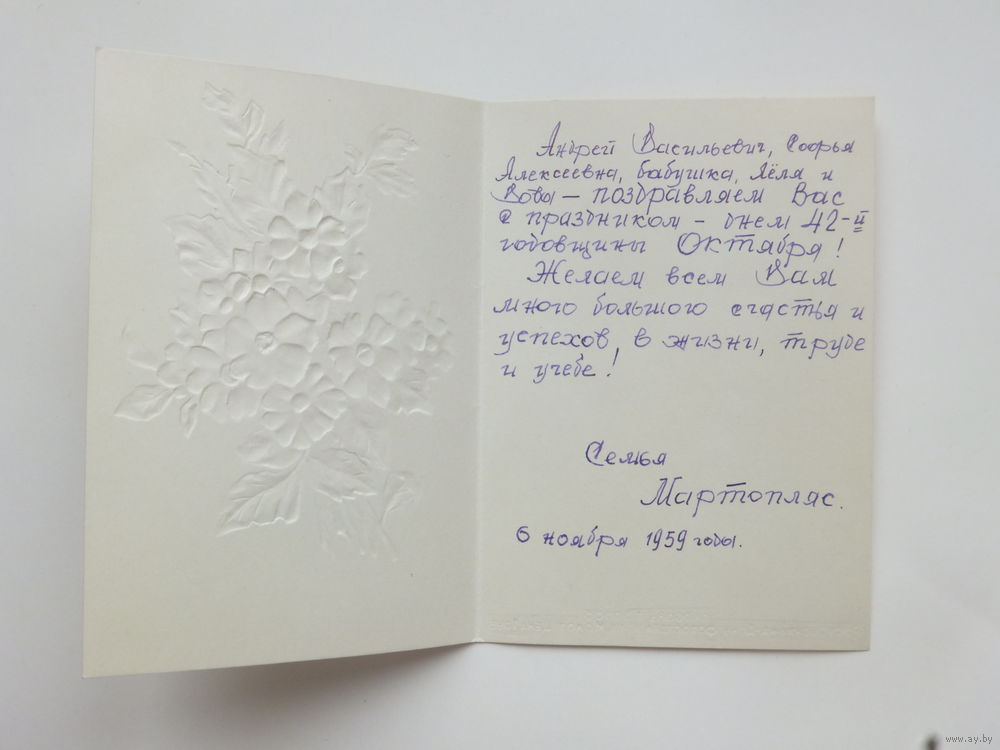 Андрей Васильевич, Софья
Алексеевна, бабушка, Лёля и
Вова — поздравляем Вас
с праздником - днем 42-й
годовщины Октября!
Желаем всем Вам
много большого счастья и
успехов в жизни, труде
и учебе!
Семья
Мартопляс.
6 ноября 1959 годы.
www.ay.by